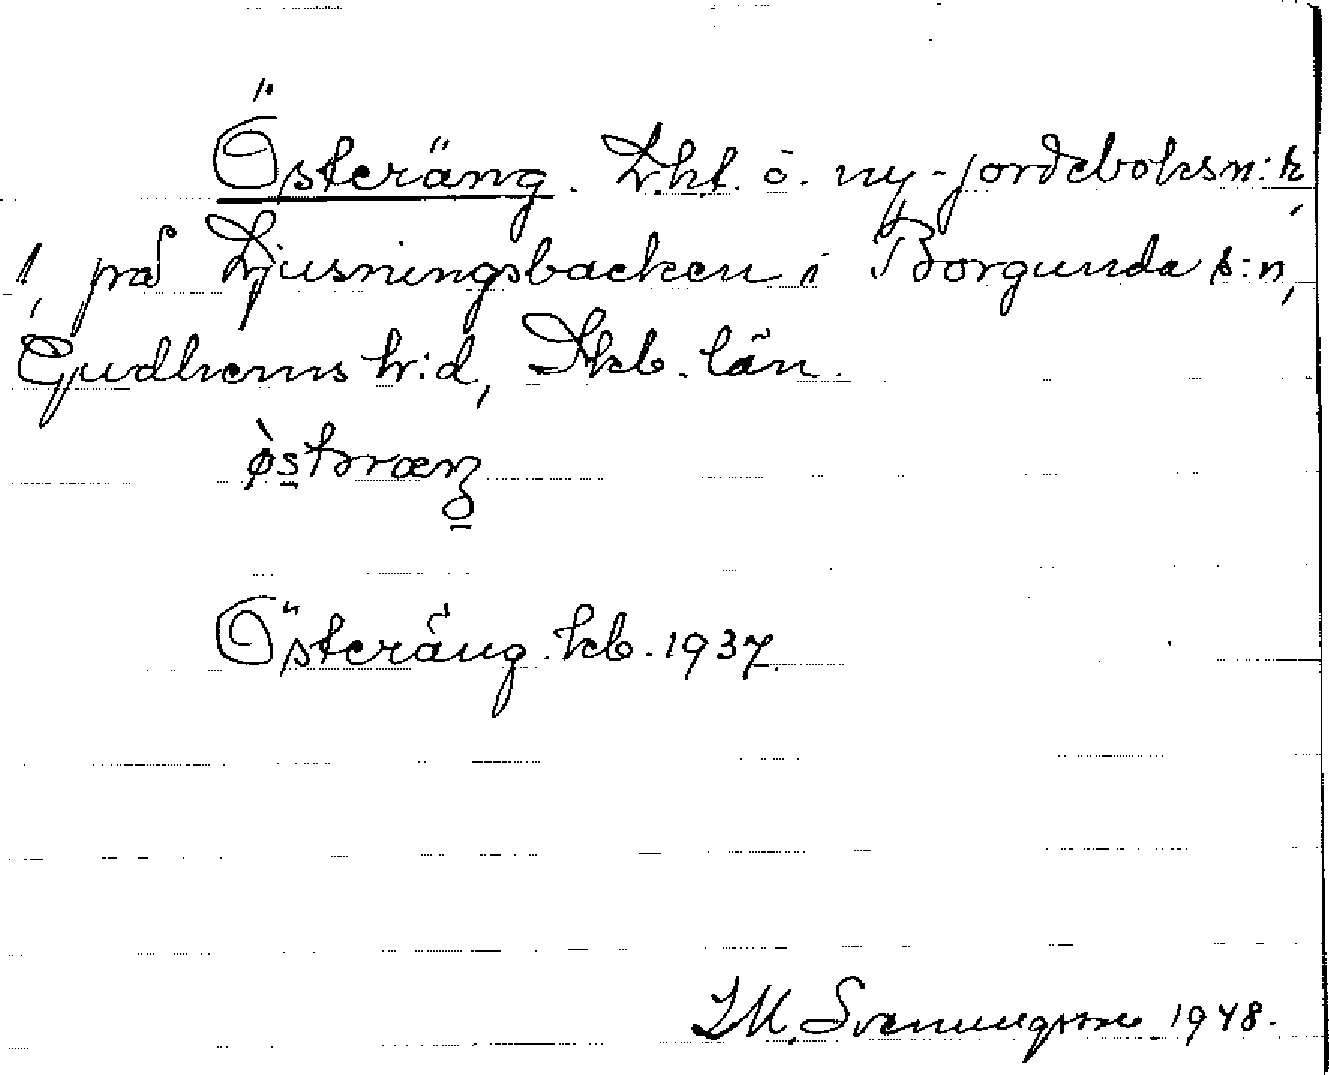 Österäng. Lht. o. ny-jordeboksn:r
1, på Ljusningsbacken i Borgunda s:n,
Gudhems h:d, Skb. län.
ö̀stəræŋ
Österäng. kb. 1937.
Svenungsson 1948.